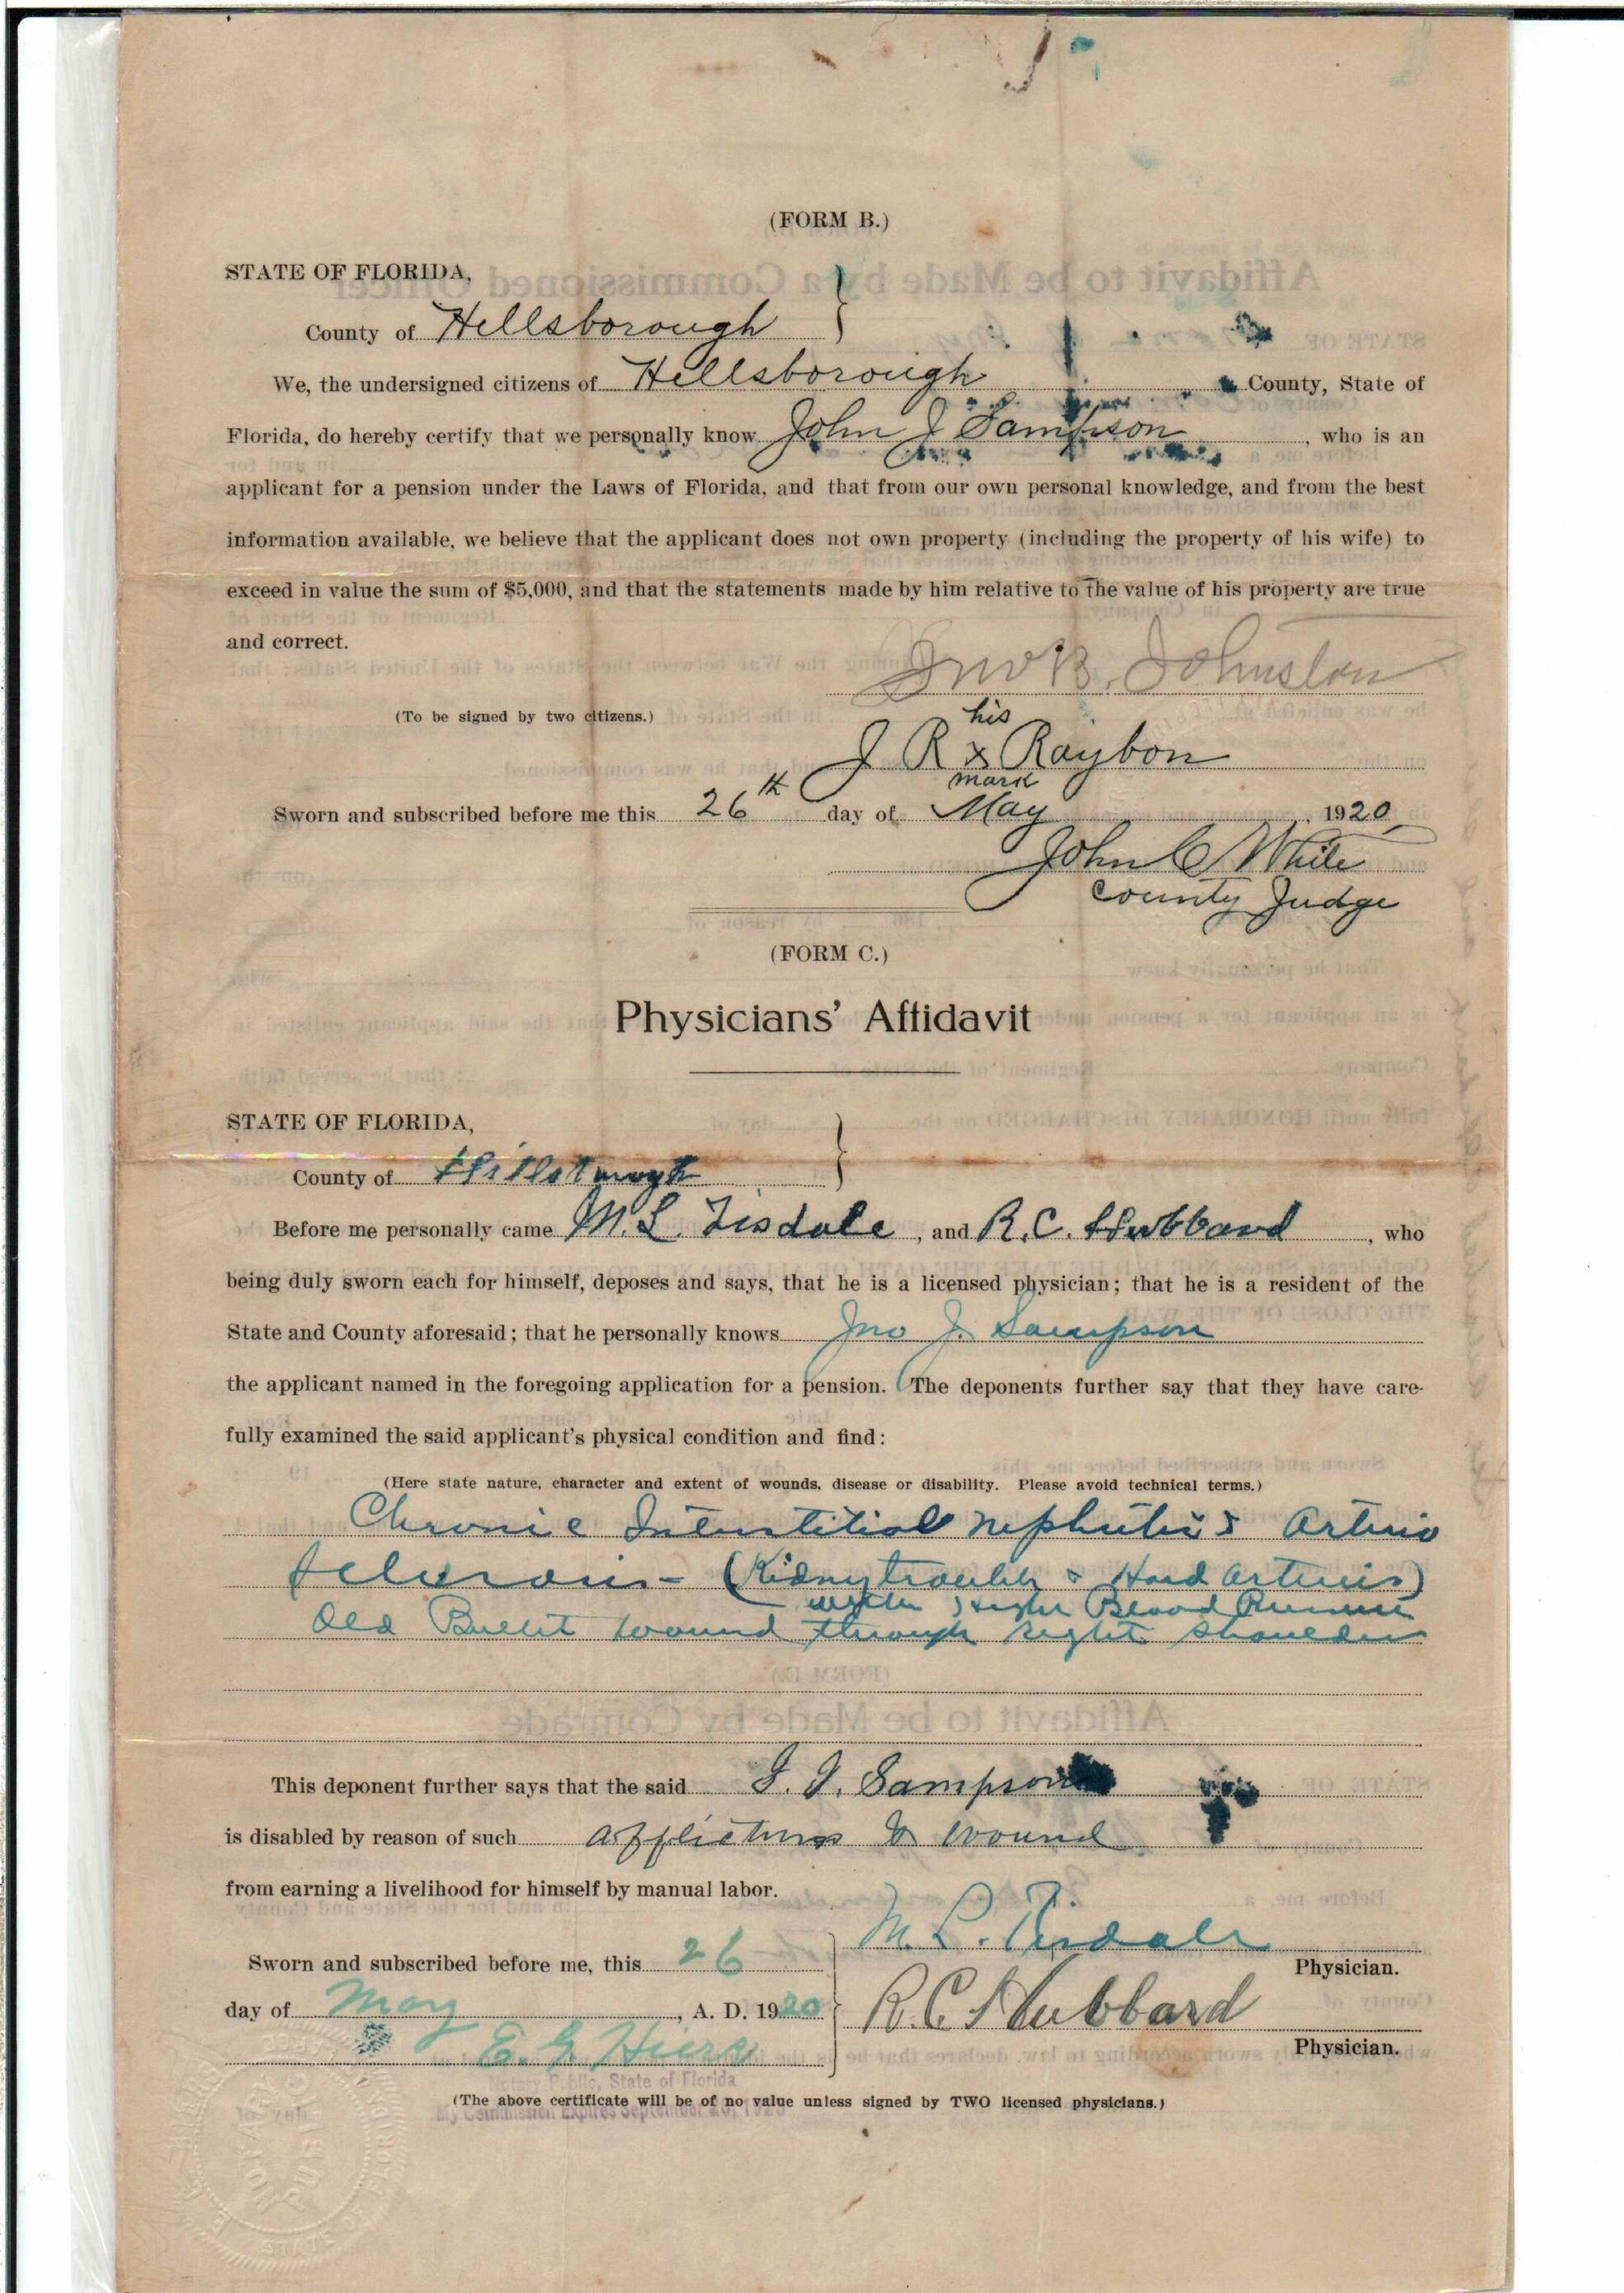 (FORM B.)
STATE OF FLORIDA,
County of Hillsborough
We, the undersigned citizens of Hillsborough County, State of
Florida, do hereby certify that we personally know John J Sampson, who is an
applicant for a pension under the Laws of Florida, and that from our own personal knowledge, and from the best
information available, we believe that the applicant does not own property (including the property of his wife) to
exceed in value the sum of $5,000, and that the statements made by him relative to the value of his property are true
and correct.
Jno B. Johnston
(To be signed by two citizens.)
his
J R x Raybon
mark
Sworn and subscribed before me this 26th day of May, 1920
John C White
County Judge
(FORM C.)
Physicians' Affidavit
STATE OF FLORIDA,
County of Hillsborough
Before me personally came M. L. Tisdale, and R. C. Hubbard, who
being duly sworn each for himself, deposes and says, that he is a licensed physician; that he is a resident of the
State and County aforesaid; that he personally knows Jno J. Sampson
the applicant named in the foregoing application for a pension. The deponents further say that they have care-
fully examined the said applicant's physical condition and find:
(Here state nature, character and extent of wounds, disease or disability. Please avoid technical terms.)
Chronic Interstitial nephritis & Arterio
Sclerosis - (Kidney trouble & Hard arteries)
with High Blood Pressure
Old Bullet wound through right shoulder
This deponent further says that the said J. J. Sampson
is disabled by reason of such afflictions & wound
from earning a livelihood for himself by manual labor.
M. L. Tisdale
Sworn and subscribed before me, this 26
Physician.
day of May, A. D. 1920
R. C. Hubbard
E. G. Hiers
Physician.
Notary Public, State of Florida
(The above certificate will be of no value unless signed by TWO licensed physicians.)
My Commission Expires September